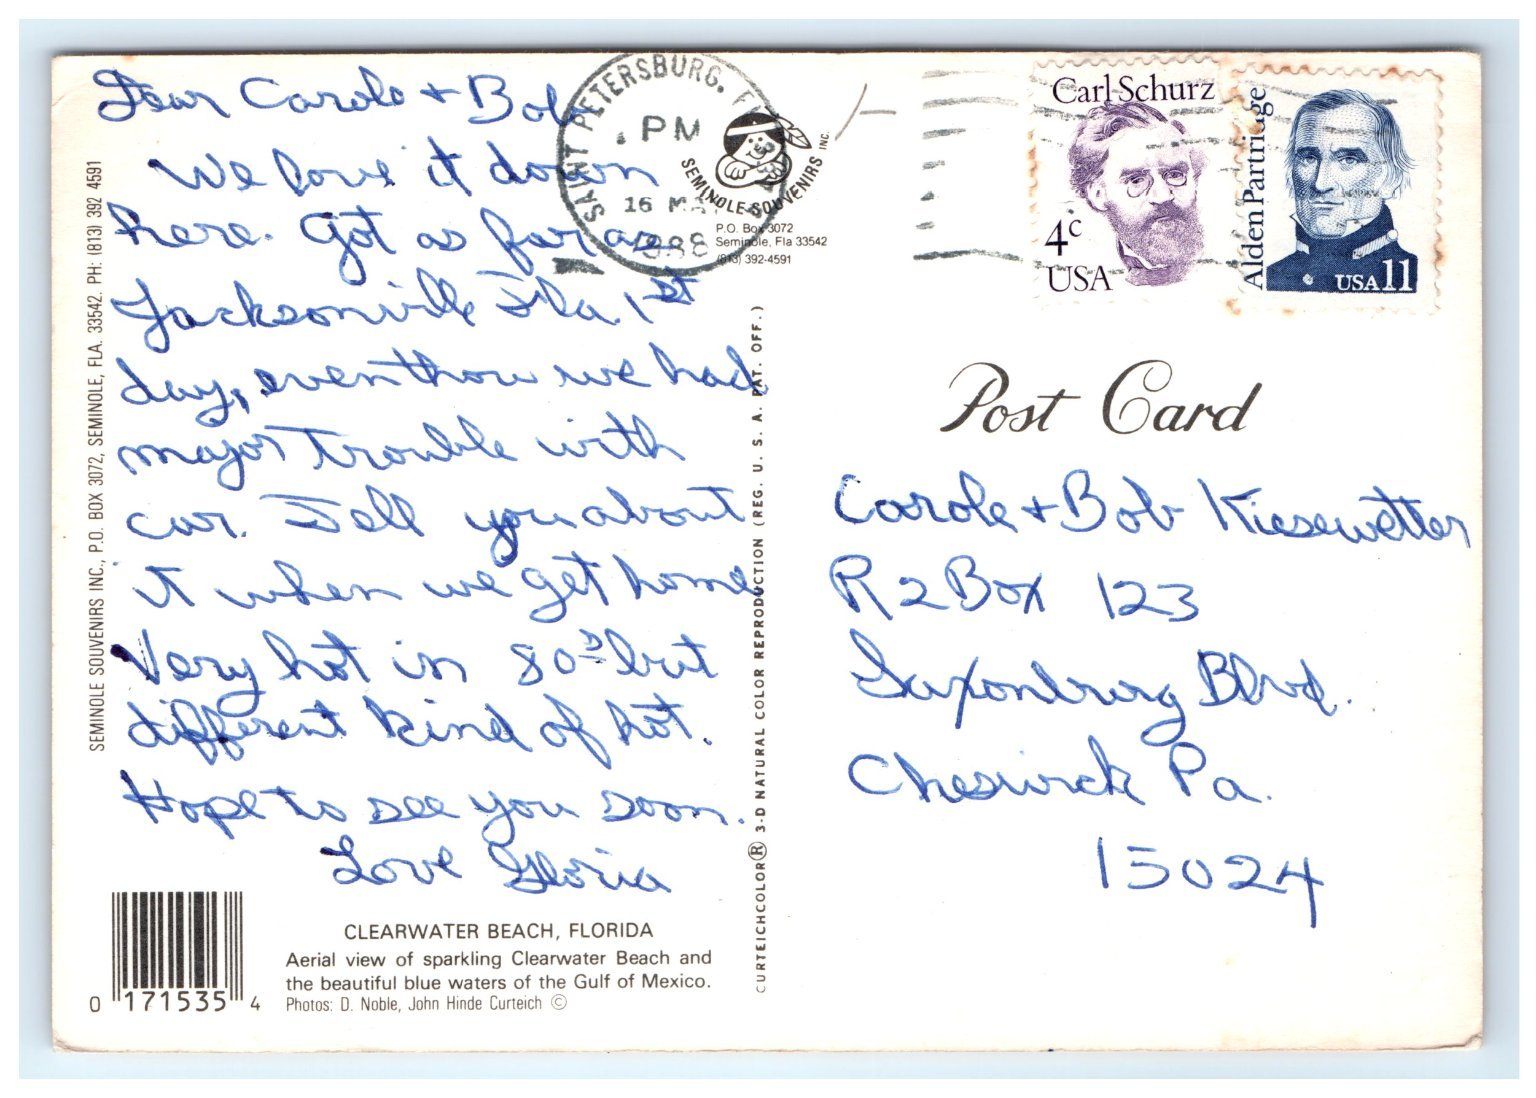 Dear Carole + Bob
We love it down
here. Got as far as
Jacksonville Fla. 1st
day, eventhow we had
major trouble with
car. Tell you about
it when we get home
Very hot in 80s but
different kind of hot.
Hope to see you soon.
Love Gloria
SEMINOLE SOUVENIRS INC., P.O. BOX 3072, SEMINOLE, FLA. 33542. PH: (813) 392 4591
0 171535 4
CLEARWATER BEACH, FLORIDA
Aerial view of sparkling Clearwater Beach and
the beautiful blue waters of the Gulf of Mexico.
Photos: D. Noble, John Hinde Curteich ©
CURTEICHCOLOR® 3-D NATURAL COLOR REPRODUCTION (REG. U. S. A. PAT. OFF.)
SAINT PETERSBURG, FL
PM
16 MAY
1988
SEMINOLE SOUVENIRS INC.
P.O. Box 3072
Seminole, Fla 33542
(813) 392-4591
Carl Schurz
4c
USA
Alden Partridge
USA 11
Post Card
Carole + Bob Kiesewetter
R 2 Box 123
Saxonburg Blvd.
Cheswick Pa.
15024